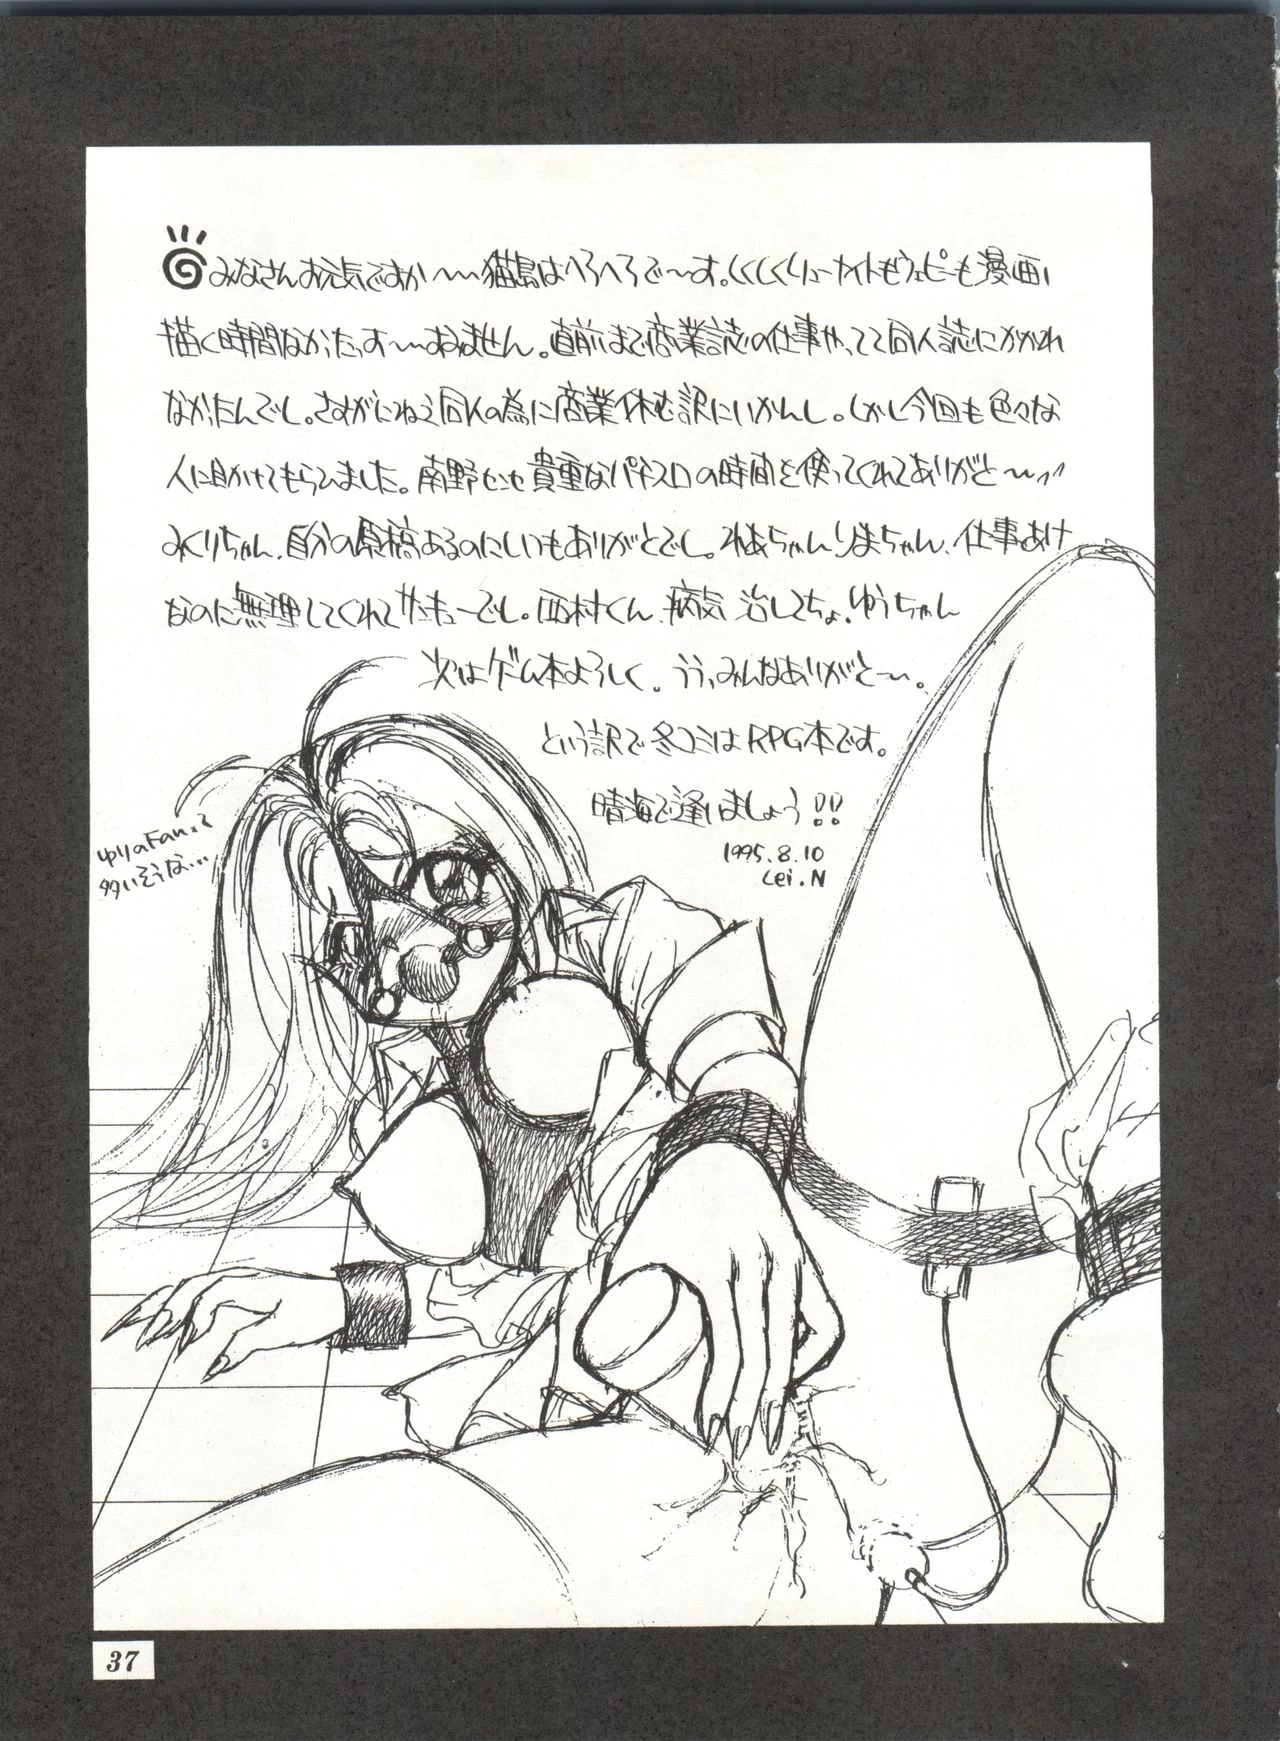 みなさんお元気ですか〜〜猫島はへろへろで〜す。しくしくリューナイトもウェピーも漫画
描く時間なかったっす〜〜すみません。直前まで商業誌の仕事やってて同人誌にかかれ
なかったんでし。さすがにねえ同人の為に商業休む訳にいかんし。しかし今回も色々な
人に助けてもらひました。南野センセ貴重なパチスロの時間を使ってくれてありがと〜
みくりちゃん、自分の原稿あるのにいつもありがとでし。ねあちゃんりまちゃん、仕事あけ
なのに無理してくれてサンキューでし。西村くん、病気治してちょ。ゆうちゃん
次はゲーム本よろしく。ううっみんなありがと〜。
という訳で冬コミはRPG本です。
晴海で逢いましょう!!
1995.8.10
Lei.N
ゆりのFanって
多いそうな…
37